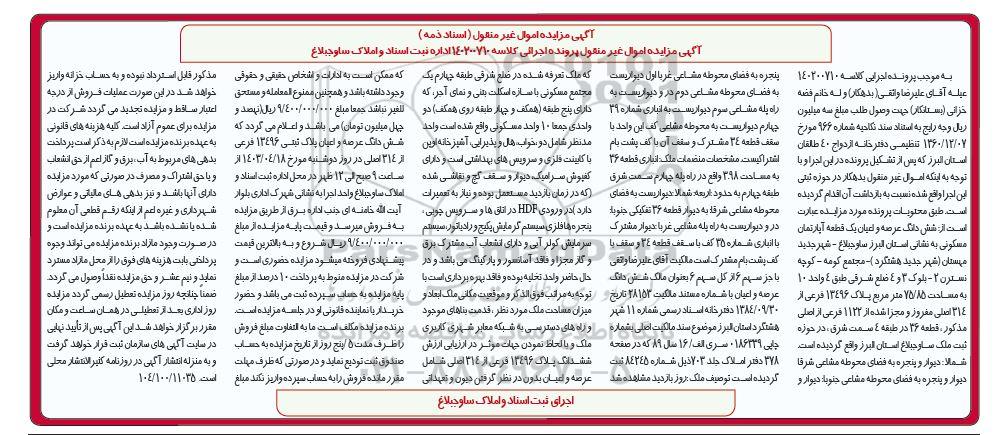 آگهی مزایده اموال غیر منقول ( اسناد ذمه )
آگهی مزایده اموال غیر منقول پرونده اجرائی کلاسه ۱۴۰۲۰۰۷۱۰ اداره ثبت اسناد و املاک ساوجبلاغ
به موجب پرونده اجرایی کلاسه ۱۴۰۲۰۰۷۱۰
علیه آقای علیرضا واثقی( بدهکار) و له خانم فضه
خزائی (بستانکار) جهت وصول طلب مبلغ سه میلیون
ریال وجه رایج به استناد سند نکاحیه شماره ۹۶۶ مورخ
۱۳۶۰/۱۲/۰۷ تنظیمی دفترخانه ازدواج ۴۰ طالقان
استان البرز که پس از تشکیل پرونده در این اجرا و با
توجه به اینکه اموال غیر منقول بدهکار در حوزه ثبتی
این اجرا واقع شده نسبت به بازداشت آن اقدام گردیده
است. طبق محتویات پرونده مورد مزایده عبارت
است از: شش دانگ عرصه و اعیان یک قطعه آپارتمان
مسکونی به نشانی استان البرز ساوجبلاغ - شهر جدید
مهستان (شهر جدید هشتگرد) - مجتمع کومه - کوچه
نسترن ۲ - بلوک ۳ و ۴ ضلع شرقی طبق ۴ واحد ۱۰
به مساحت ۷۵/۸۵ متر مربع پلاک ۱۳۴۹۶ فرعی از
۳۱۴ اصلی مفروز و مجزا شده از ۱۱۲۲ فرعی از اصلی
مذکور ، قطعه ۳۶ در طبقه ۴ سمت شرق ، در حوزه
ثبت ملک ساوجبلاغ استان البرز واقع گردیده است.
شمالا: دیوار و پنجره به فضای محوطه مشاعی شرقا
دیوار و پنجره به فضای محوطه مشاعی جنوبا: دیوار و
پنجره به فضای محوطه مشاعی غربا اول دیواریست
به فضای محوطه مشاعی دوم در و دیواریست به
راه پله مشاعی سوم دیواریست به انباری شماره ۳۹
چهارم دیواریست به محوطه مشاعی کف این واحد با
سقف قطعه ۳۴ مشترک و سقف آن با کف پشت بام
اشتراکیست. مشخصات منضمات ملک: انباری قطعه ۳۶
به مساحت ۳.۹۸ واقع در راه پله چهارم سمت شرق
طبقه چهارم به حدود اربعه: شمالا: دیواریست به فضای
محوطه مشاعی شرقا: به دیوار قطعه ۳۶ تفکیکی جنوبا:
در و دیواریست به راه پله مشاعی غربا: دیوار مشترک
با انباری شماره ۳۵ کف با سقف قطعه ۳۴ و سقف با
کف پشت بام مشترک است مالکیت آقای علیرضا واثقی
با جز سهم ۶ از کل سهم ۶ بعنوان مالک شش دانگ
عرصه و اعیان با شماره مستند مالکیت ۲۸۱۵۳ تاریخ
۱۳۸۴/۰۹/۳۰ دفترخانه اسناد رسمی شماره ۱۱ شهر
هشتگرد استان البرز موضوع سند مالکیت اصلی بشماره
چاپی ۰۱۸۶۳۳۹ سری الف / ۱۶ سال ۸۹ که در صفحه
۳۷۸ دفتر املاک جلد ۷۰۳ ذیل شماره ۸۴۲۴۵ ثبت
گردیده است توصیف ملک :روز بازدید مشاهده شد
که ملک تعرفه شده در ضلع شرقی طبقه چهارم یک
مجتمع مسکونی با سازه اسکلت بتنی و نمای آجر، که
دارای پنج طبقه (همکف و چهار طبقه روی همکف) دو
واحدی جمعا ۱۰ واحد مسکونی واقع شده است واحد
مدنظر شامل دو خواب، هال و پذیرایی، آشپزخانه اوپن
با کابینت فلزی و سرویس های بهداشتی است و دارای
کفپوش سرامیک دیوار و سقف گچ و نقاشی شده
(که در زمان بازدید مستعمل بوده و نیاز به تعمیرات
دارد )در ورودی HDF در اتاق ها و سرویس چوبی ،
پنجره ها فلزی سیستم گرمایش پکیج و رادیاتور،سیستم
سرمایش کولر آبی و دارای انشعاب آب مشترک برق
و گاز مجزا و فاقد آسانسور و پارکینگ می باشد و در
حال حاضر واحد تخلیه بوده و فاقد بهره برداری است با
توجه به مراتب فوق الذکر و موقعیت مکانی ملک ابعاد و
میزان مساحت ملک مورد نظر ، قدمت بناهای موجود
و راه های دسترسی به شبکه معابر شهری کاربری
ملک و با لحاظ نمودن جهات موثر در ارزیابی ارزش
ششدانگ پلاک ۱۳۴۹۶ فرعی از ۳۱۴ اصلی شامل
عرصه و اعیان بدون در نظر گرفتن دیون و تعهداتی
که ممکن است به ادارات و اشخاص حقیقی و حقوقی
وجود داشته باشد و همچنین ممنوع المعامله و مستحق
للغیر نباشد جمعا مبلغ ۹/۴۰۰/۰۰۰/۰۰۰ ریال(نهصد و
چهل میلیون تومان) می باشد و اعلام می گردد که
شش دانگ عرصه و اعیان پلاک ثبتی ۱۳۴۹۶ فرعی
از ۳۱۴ اصلی در روز دوشنبه مورخ ۱۴۰۳/۰۴/۱۸ از
ساعت ۹ صبح الی ۱۲ ظهر در محل اداره ثبت اسناد و
املاک ساوجبلاغ واحد اجرا به نشانی شهرک اداری بلوار
آیت الله خامنه ای جنب اداره برق از طریق مزایده
به فروش میرسد و قیمت پایه مزایده از مبلغ
۹/۴۰۰/۰۰۰/۰۰۰ ریال شروع و به بالاترین قیمت
پیشنهادی فروخته میشود مزایده حضوری است و
شرکت در مزایده منوط به پرداخت ۱۰ درصد از مبلغ
پایه مزایده به حساب سپرده ثبت می باشد و حضور
خریدار یا نماینده قانونی او در جلسه مزایده است.
برنده مزایده مکلف است ما به التفاوت مبلغ فروش
را ظرف مدت ۵ /پنج روز از تاریخ مزایده به حساب
صندوق ثبت تودیع نماید و در صورتی که ظرف مهلت
مقرر مانده فروش را به حساب سپرده واریز نکند مبلغ
مذکور قابل استرداد نبوده و به حساب خزانه واریز
خواهد شد در این صورت عملیات فروش از درجه
اعتبار ساقط و مزایده تجدید می گردد شرکت در
مزایده برای عموم آزاد است. کلیه هزینه های قانونی
به عهده برنده مزایده است لازم به ذکر است پرداخت
بدهی های مربوط به آب، برق و گاز اعم از حق انشعاب
و یا حق اشتراک و مصرف در صورتی که مورد مزایده
دارای آنها باشد و نیز بدهی های مالیاتی و عوارض
شهرداری و غیره اعم از اینکه رقم قطعی آن معلوم
شده یا نشده باشد به عهده برنده مزایده است و
در صورت وجود مازاد برنده مزایده می تواند وجوه
پرداختی بابت هزینه های فوق را از محل مازاد مسترد
نماید و نیم عشر و حق مزایده نقداً وصول می گردد.
ضمنا چنانچه روز مزایده تعطیل رسمی گردد مزایده
روز اداری بعد از تعطیلی در همان ساعت و مکان
مقرر برگزار خواهد شد این آگهی پس از تأیید نهایی
در سایت آگهی های سازمان ثبت قرار خواهد گرفت
و به منزله انتشار آگهی در روزنامه کثیر الانتشار محلی
است. ۱۰۴/۱۰۰/۱۱۰۳۵
اجرای ثبت اسناد و املاک ساوجبلاغ
۰۲۱-۸۸۳۴۹۶۷۰-۵